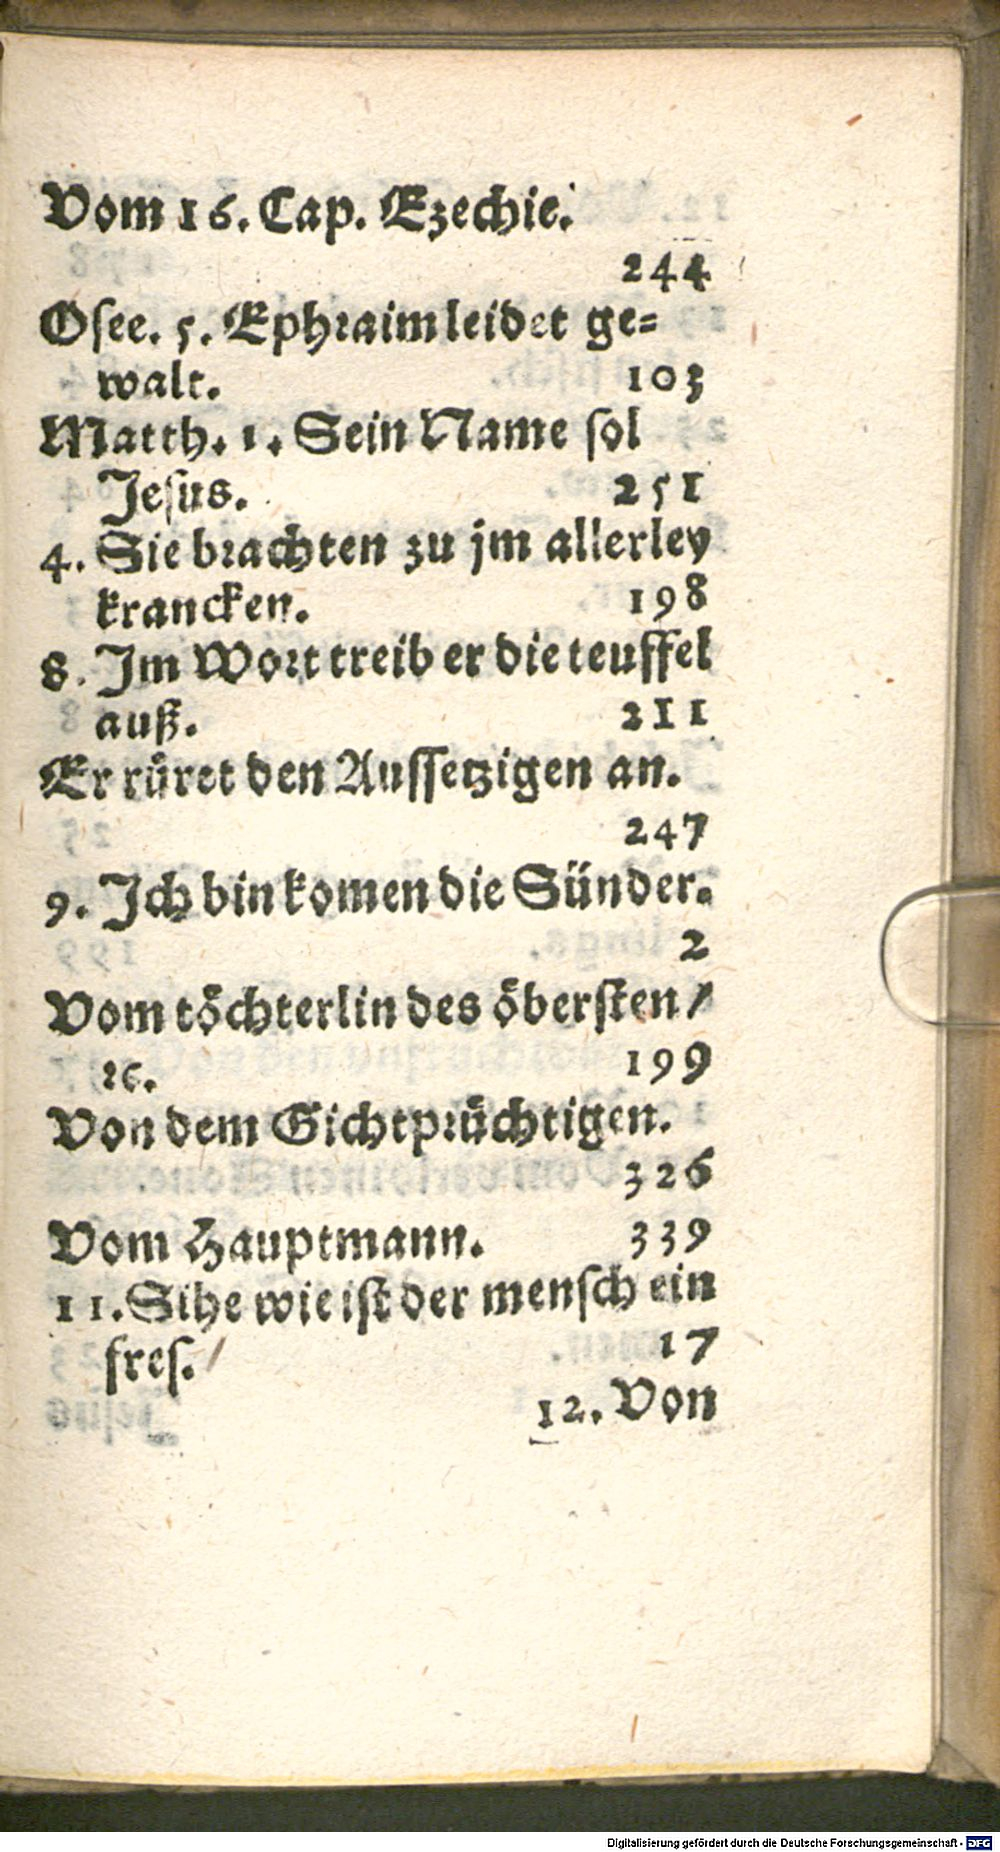 Vom 16. Cap. Ezechie.
244
Osee. 5. Ephraim leidet ge=
walt. 103
Matth. 1. Sein Name sol
Jesus. 251
4. Sie brachten zu jm allerley
krancken. 198
8. Im Wort treib er die teuffel
auß. 211
Er rüret den Aussetzigen an.
247
9. Ich bin komen die Sünder.
2
Vom töchterlin des öbersten /
ꝛc. 199
Von dem Gichtprüchtigen.
326
Vom Hauptmann. 339
11. Sihe wie ist der mensch ein
fres. 17
12. Von
Digitalisierung gefördert durch die Deutsche Forschungsgemeinschaft - DFG